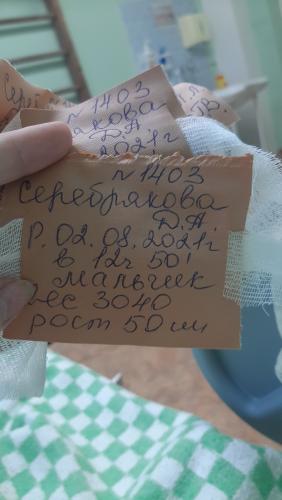 №1403
акова
Д.А.
2021г
№1403
Серебрякова
Д.А.
Р. 02.08.2021г
в 12ч 50'
мальчик
вес 3040
рост 50см